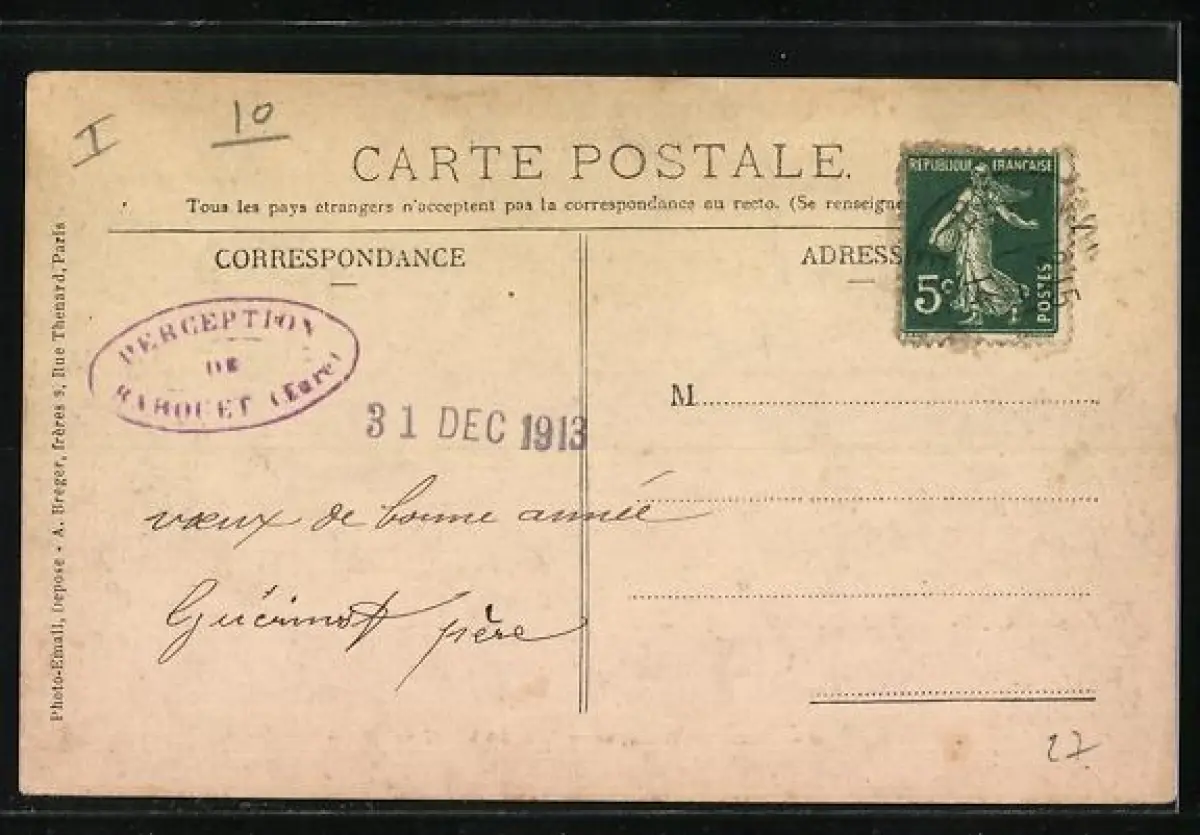 I
10
CARTE POSTALE.
Tous les pays étrangers n'acceptent pas la correspondance au recto. (Se renseigne
CORRESPONDANCE
ADRESS
REPUBLIQUE FRANÇAISE
5c
POSTES
PERCEPTION
DE
(Eure)
31 DEC 1913
M
vœux de bonne année
Guérinot père
Photo-Email, Déposé - A. Breger, frères 9, Rue Thenard, Paris
27